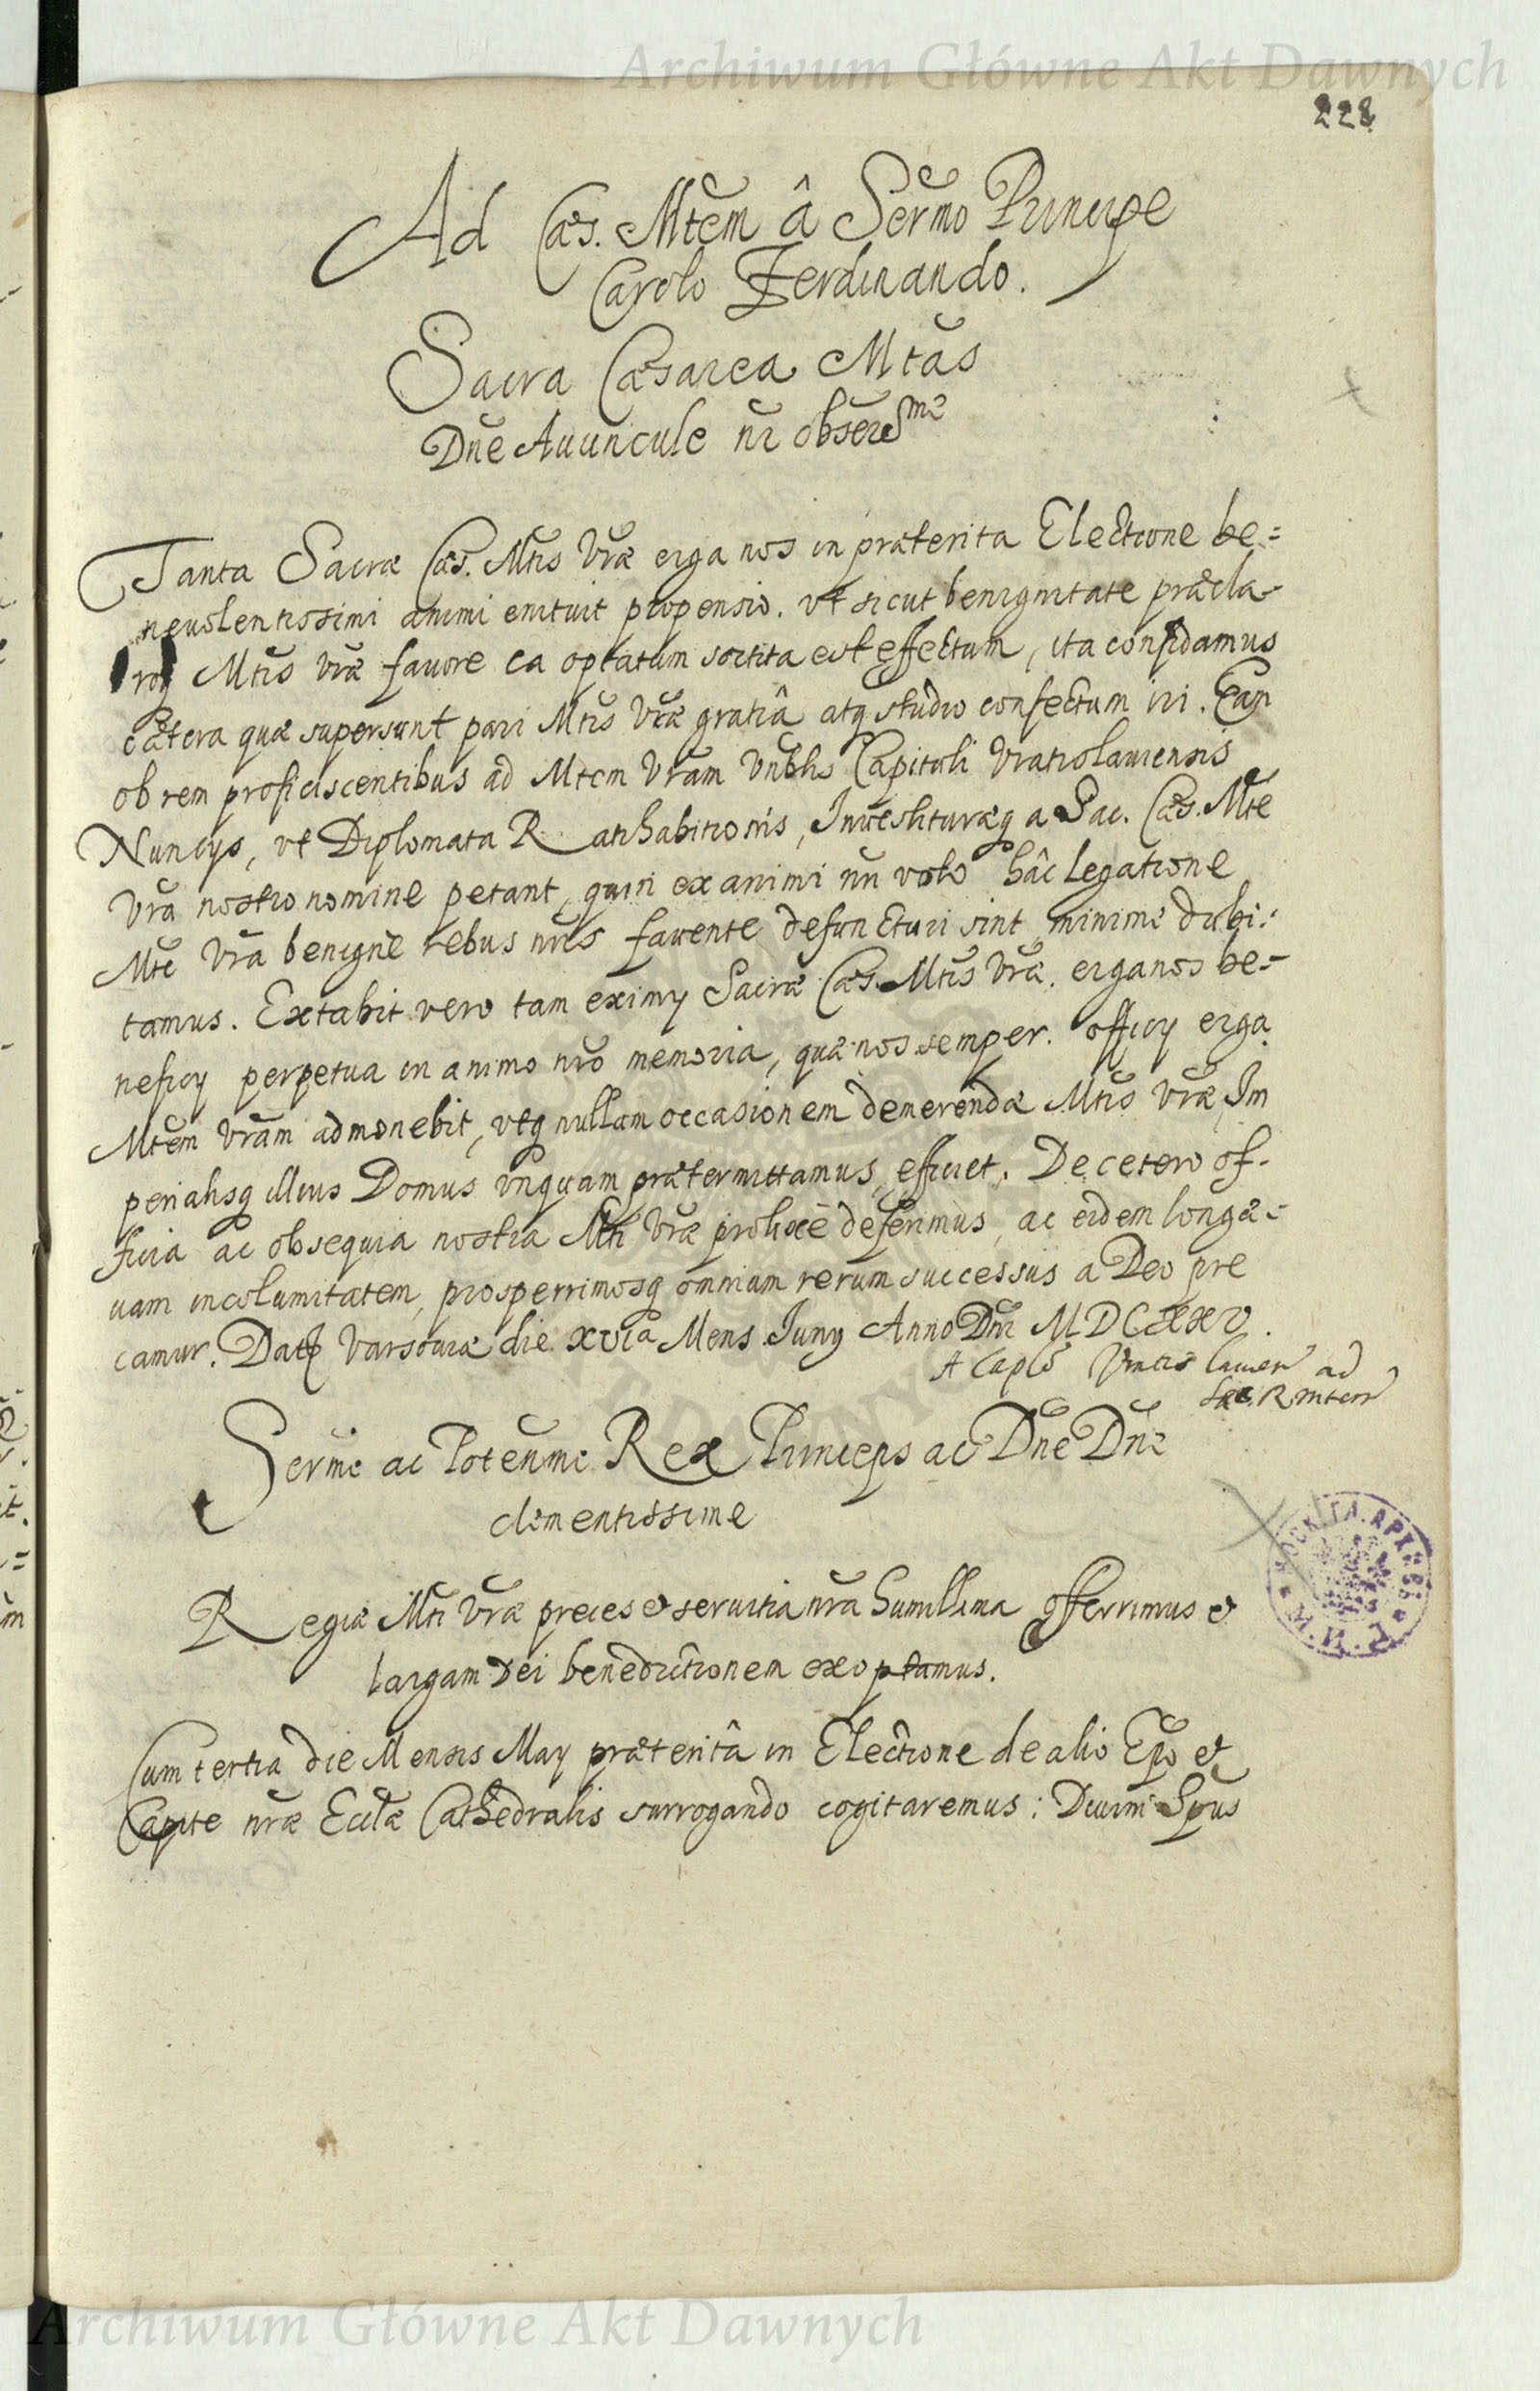 Archiwum Główne Akt Dawnych
228
Ad Cæs. Mtem â Sermo Principe
Carolo Ferdinando.
Sacra Cæsarea Mtas
Dne Auuncule nr obserd^me
Tanta Sacræ Cæs. Mtis Vræ erga nos in præterita Electione be=
neuolentissimi animi enituit propensio. vt sicut benignitate præcla-
roq Mtis Vræ fauore ea optatum sortita est effectum, ita confidamus
cætera quæ supersunt pari Mtis Vræ gratiâ atq studio confectum iri. Eap
ob rem proficiscentibus ad Mtem Vram Vnbhs Capituli Vratislauiensis
Nuncys, vt Diplomata Ratihabitionis, Inuestituræq a Sac. Cæs. Mte
Vra nostro nomine petant, quin ex animi nri voto hâc legatione
Mte Vra benignè rebus nris fauente defuncturi sint minimè dubi:
tamus. Extabit vero tam eximy Sacræ Cæs. Mtis Vræ. erga nos be=
neficy perpetua in animo nro memoria, quæ nos semper. officy erga
Mtem Vram admonebit, vtq nullam occasionem demerendæ Mtis Vræ, Im
perialisq illius Domus vnquam prætermittamus, efficiet. De cetero of-
ficia ac obsequia nostra Mti Vræ prolixè deferimus, ac eidem longæ-
uam incolumitatem, prosperrimosq omnium rerum successus a Deo pre
camur. Dat Varsouiæ die xvi^a Mens Iuny Anno Dni MDCXXV.
A Caplo Vratislauien ad
Sac. R. Mtem
Serme ac Potenme Rex Princeps ac Dne Dne
clementissime
Regiæ Mti Vræ preces et seruitia nra humillima offerrimus et
largam Dei benedictionem exoptamus.
Cum tertia die Mensis May præteritâ in Electione de alio Epo et
Capite nræ Ecclæ Cathedralis surrogando cogitaremus: Diuini Spus
Archiwum Główne Akt Dawnych